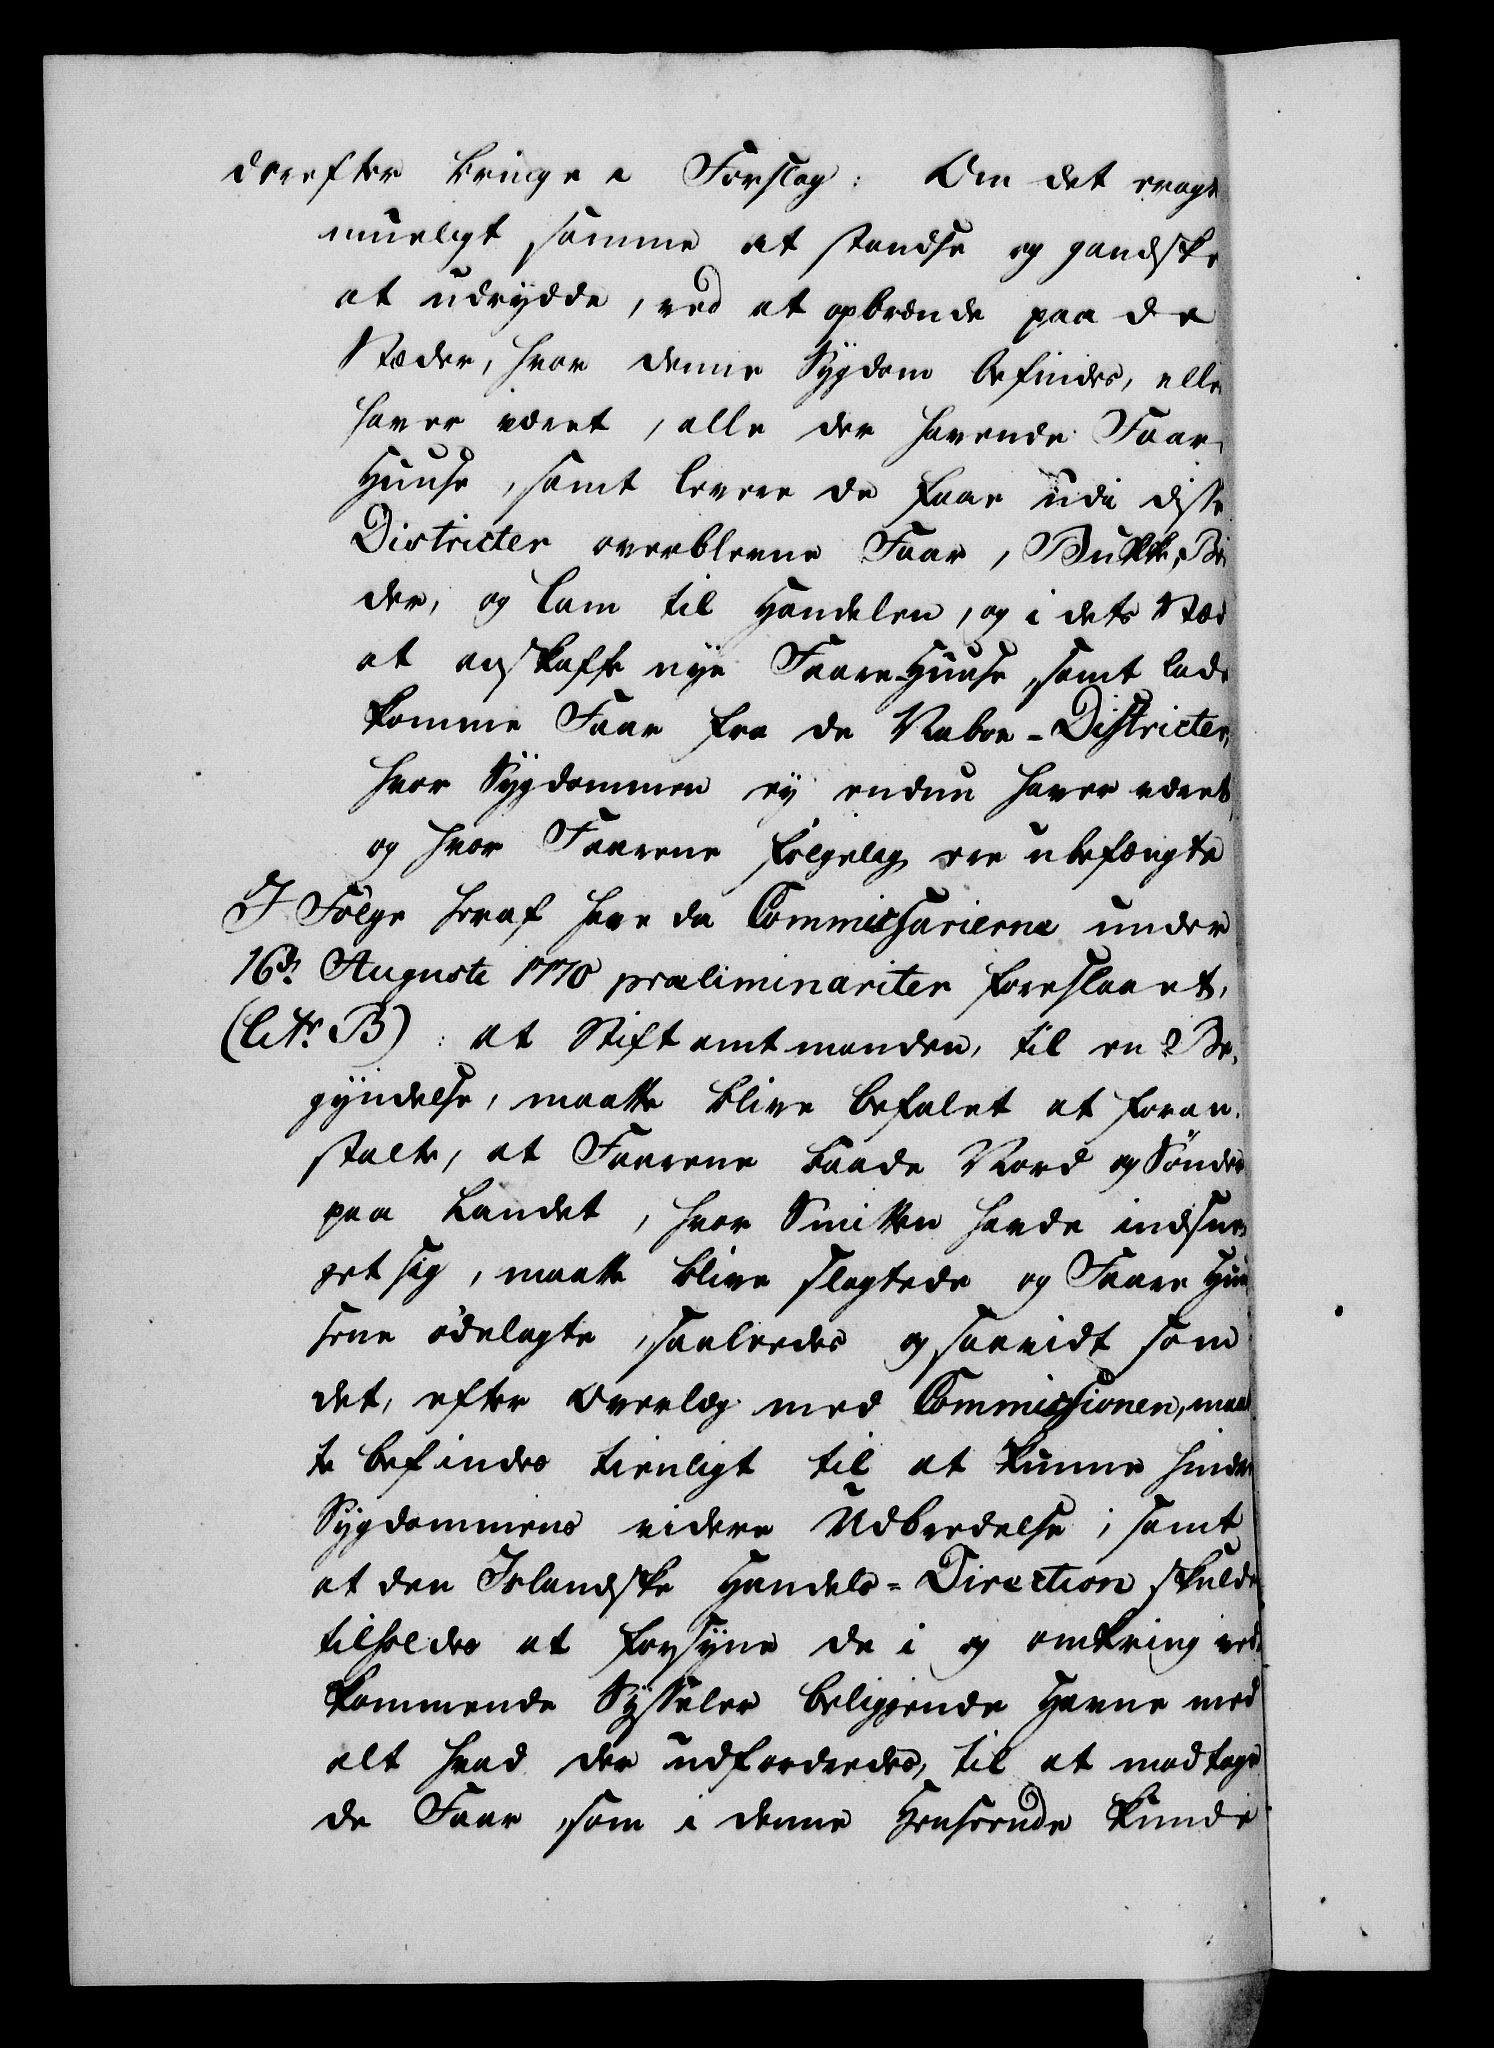 derefter bringe i Forslag: Om det var
mueligt samme at standse og gandske
at udrydde, ved at opbrænde paa de
Stæder, hvor denne Sygdom befindes, eller
haver været, alle der havende Faare-
Huuse, samt levere de faae udi disse
Districter overblevne Faar, Bukke, Be-
der, og Lam til Handelen, og i dets Stæd
at anskaffe nye Faare-Huuse, samt lade
komme Faar fra de Naboe-Districter,
hvor Sygdommen ey endnu haver været,
og hvor Faarene følgelig ere ubefængte
I Følge heraf have da Commissarierne under
16de Augusti 1770 præliminariter foreslaaet,
(litr. B): at Stiftamtmanden, til en Be-
gyndelse, maatte blive befalet at foran-
stalte, at Faarene baade Nord og Sønder
paa Landet, hvor Smitten havde indsne-
get sig, maatte blive slagtede og Faare Huu-
sene ødelagte, saaledes og saavidt som
det, efter Overlæg med Commissionen, maat-
te befindes tienligt til at kunne hindre
Sygdommens videre Udbredelse; samt
at den Islandske Handels-Direction skulde
tilholdes at forsyne de i og omkring ved-
kommende Sysseler beliggende Havne med
alt hvad der udfordredes, til at modtage
de Faar, som i denne Henseende kunde